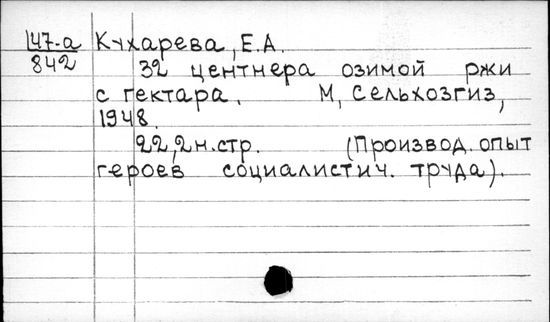 47-а Кухарева, Е.А.
842
32 центнера озимой ржи
с гектара. М, Сельхозгиз,
1948.
22,2н.стр. (Производ. опыт
героев социалистич. труда).